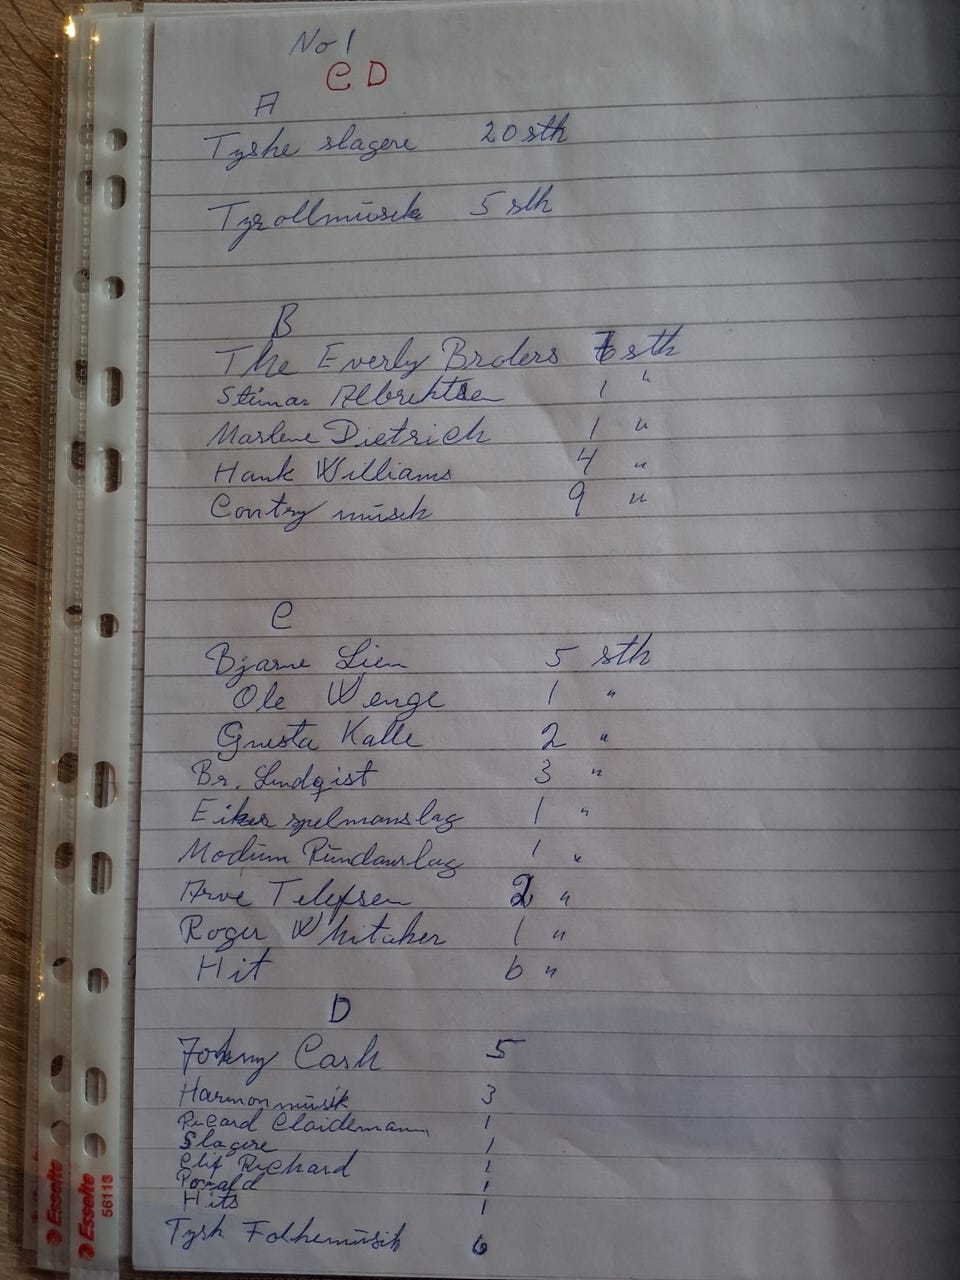 No 1
CD
A
Tyske slagere 20 stk
Tyrollmusik 5 stk
B
The Everly Broders 6 stk
Steinar Albrektsen 1 "
Marlene Dietrich 1 "
Hank Williams 4 "
Contry musik 9 "
C
Bjarne Lien 5 stk
Ole Wenge 1 "
Gnesta Kalle 2 "
Br. Lindqist 3 "
Eiker spelmanslag 1 "
Modum Rundanslag 1 "
Arve Telefsen 2 "
Roger Whitaker 1 "
Hit 6 "
D
Johnny Cash 5
Harmonmusik 3
Ricard Claidemann 1
Slagere 1
Clif Richard 1
1
Hits 1
Tysk Folkemusik 6
Esselte
Esselte
56113